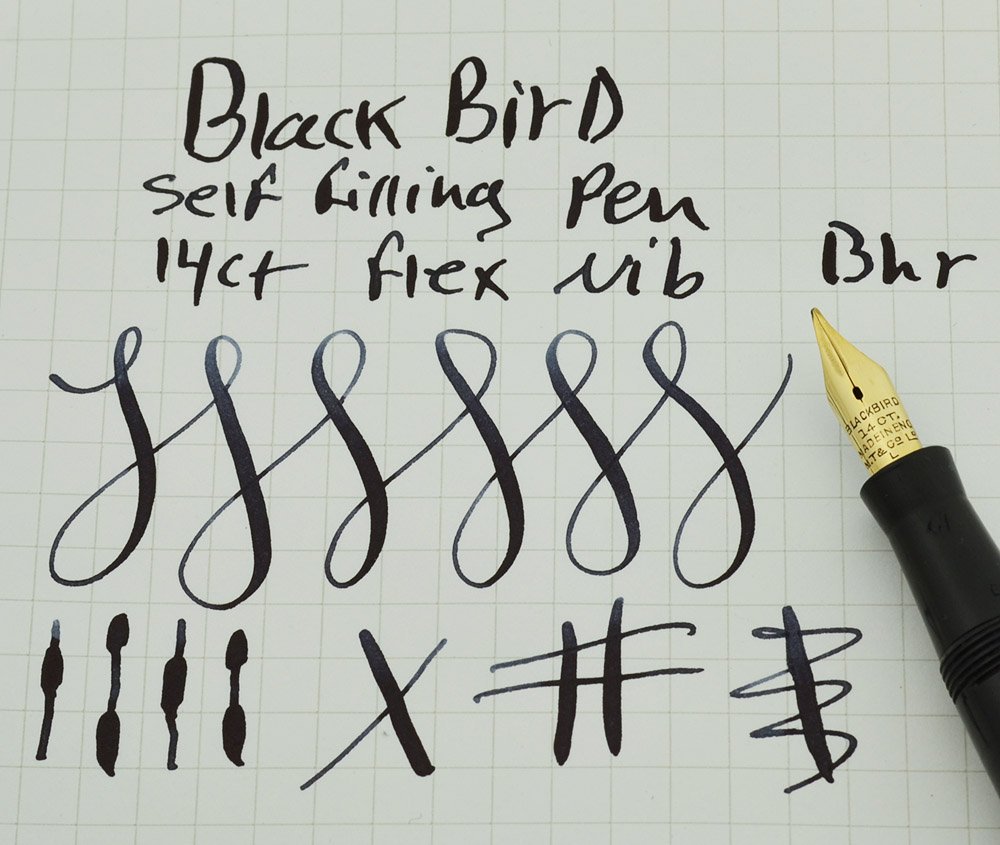 Black Bird
self filling Pen
14ct flex nib
Bhr
BLACKBIRD
14 CT.
MADE IN ENG
M.T & Co Ld
L